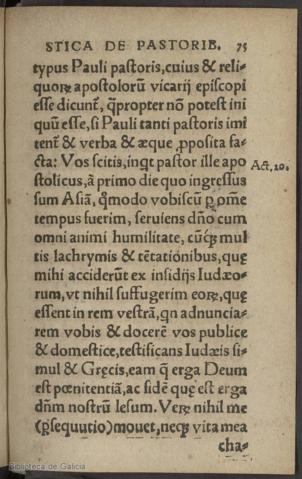 STICA DE PASTORIB. 75
typus Pauli pastoris, cuius & reli-
quorꝝ apostolorũ vicarij episcopi
esse dicunt᷑, qꝓpter nõ potest ini
quũ esse, si Pauli tanti pastoris imi
tent᷑ & verba & æque ꝓposita fa-
cta: Vos scitis, inqt pastor ille apo
stolicus, à primo die quo ingressus
sum Asiã, qͫmodo vobiscũ ꝑ om̃e
tempus fuerim, seruiens dño cum
omni animi humilitate, cũcꝗ mul
tis lachrymis & tẽtationibus, quę
mihi acciderũt ex insidijs Iudæo-
rum, vt nihil suffugerim eorꝝ, quę
essent in rem vestrã, qn adnuncia-
rem vobis & docerẽ vos publice
& domestice, testificans Iudæis si-
mul & Gręcis, eam q̃ erga Deum
est pœnitentiã, ac fidẽ quę est erga
dñm nostrũ Iesum. Verꝝ nihil me
(ꝑsequutio) mouet, necꝗ vita mea
cha-
Act. 20.
Biblioteca de Galicia